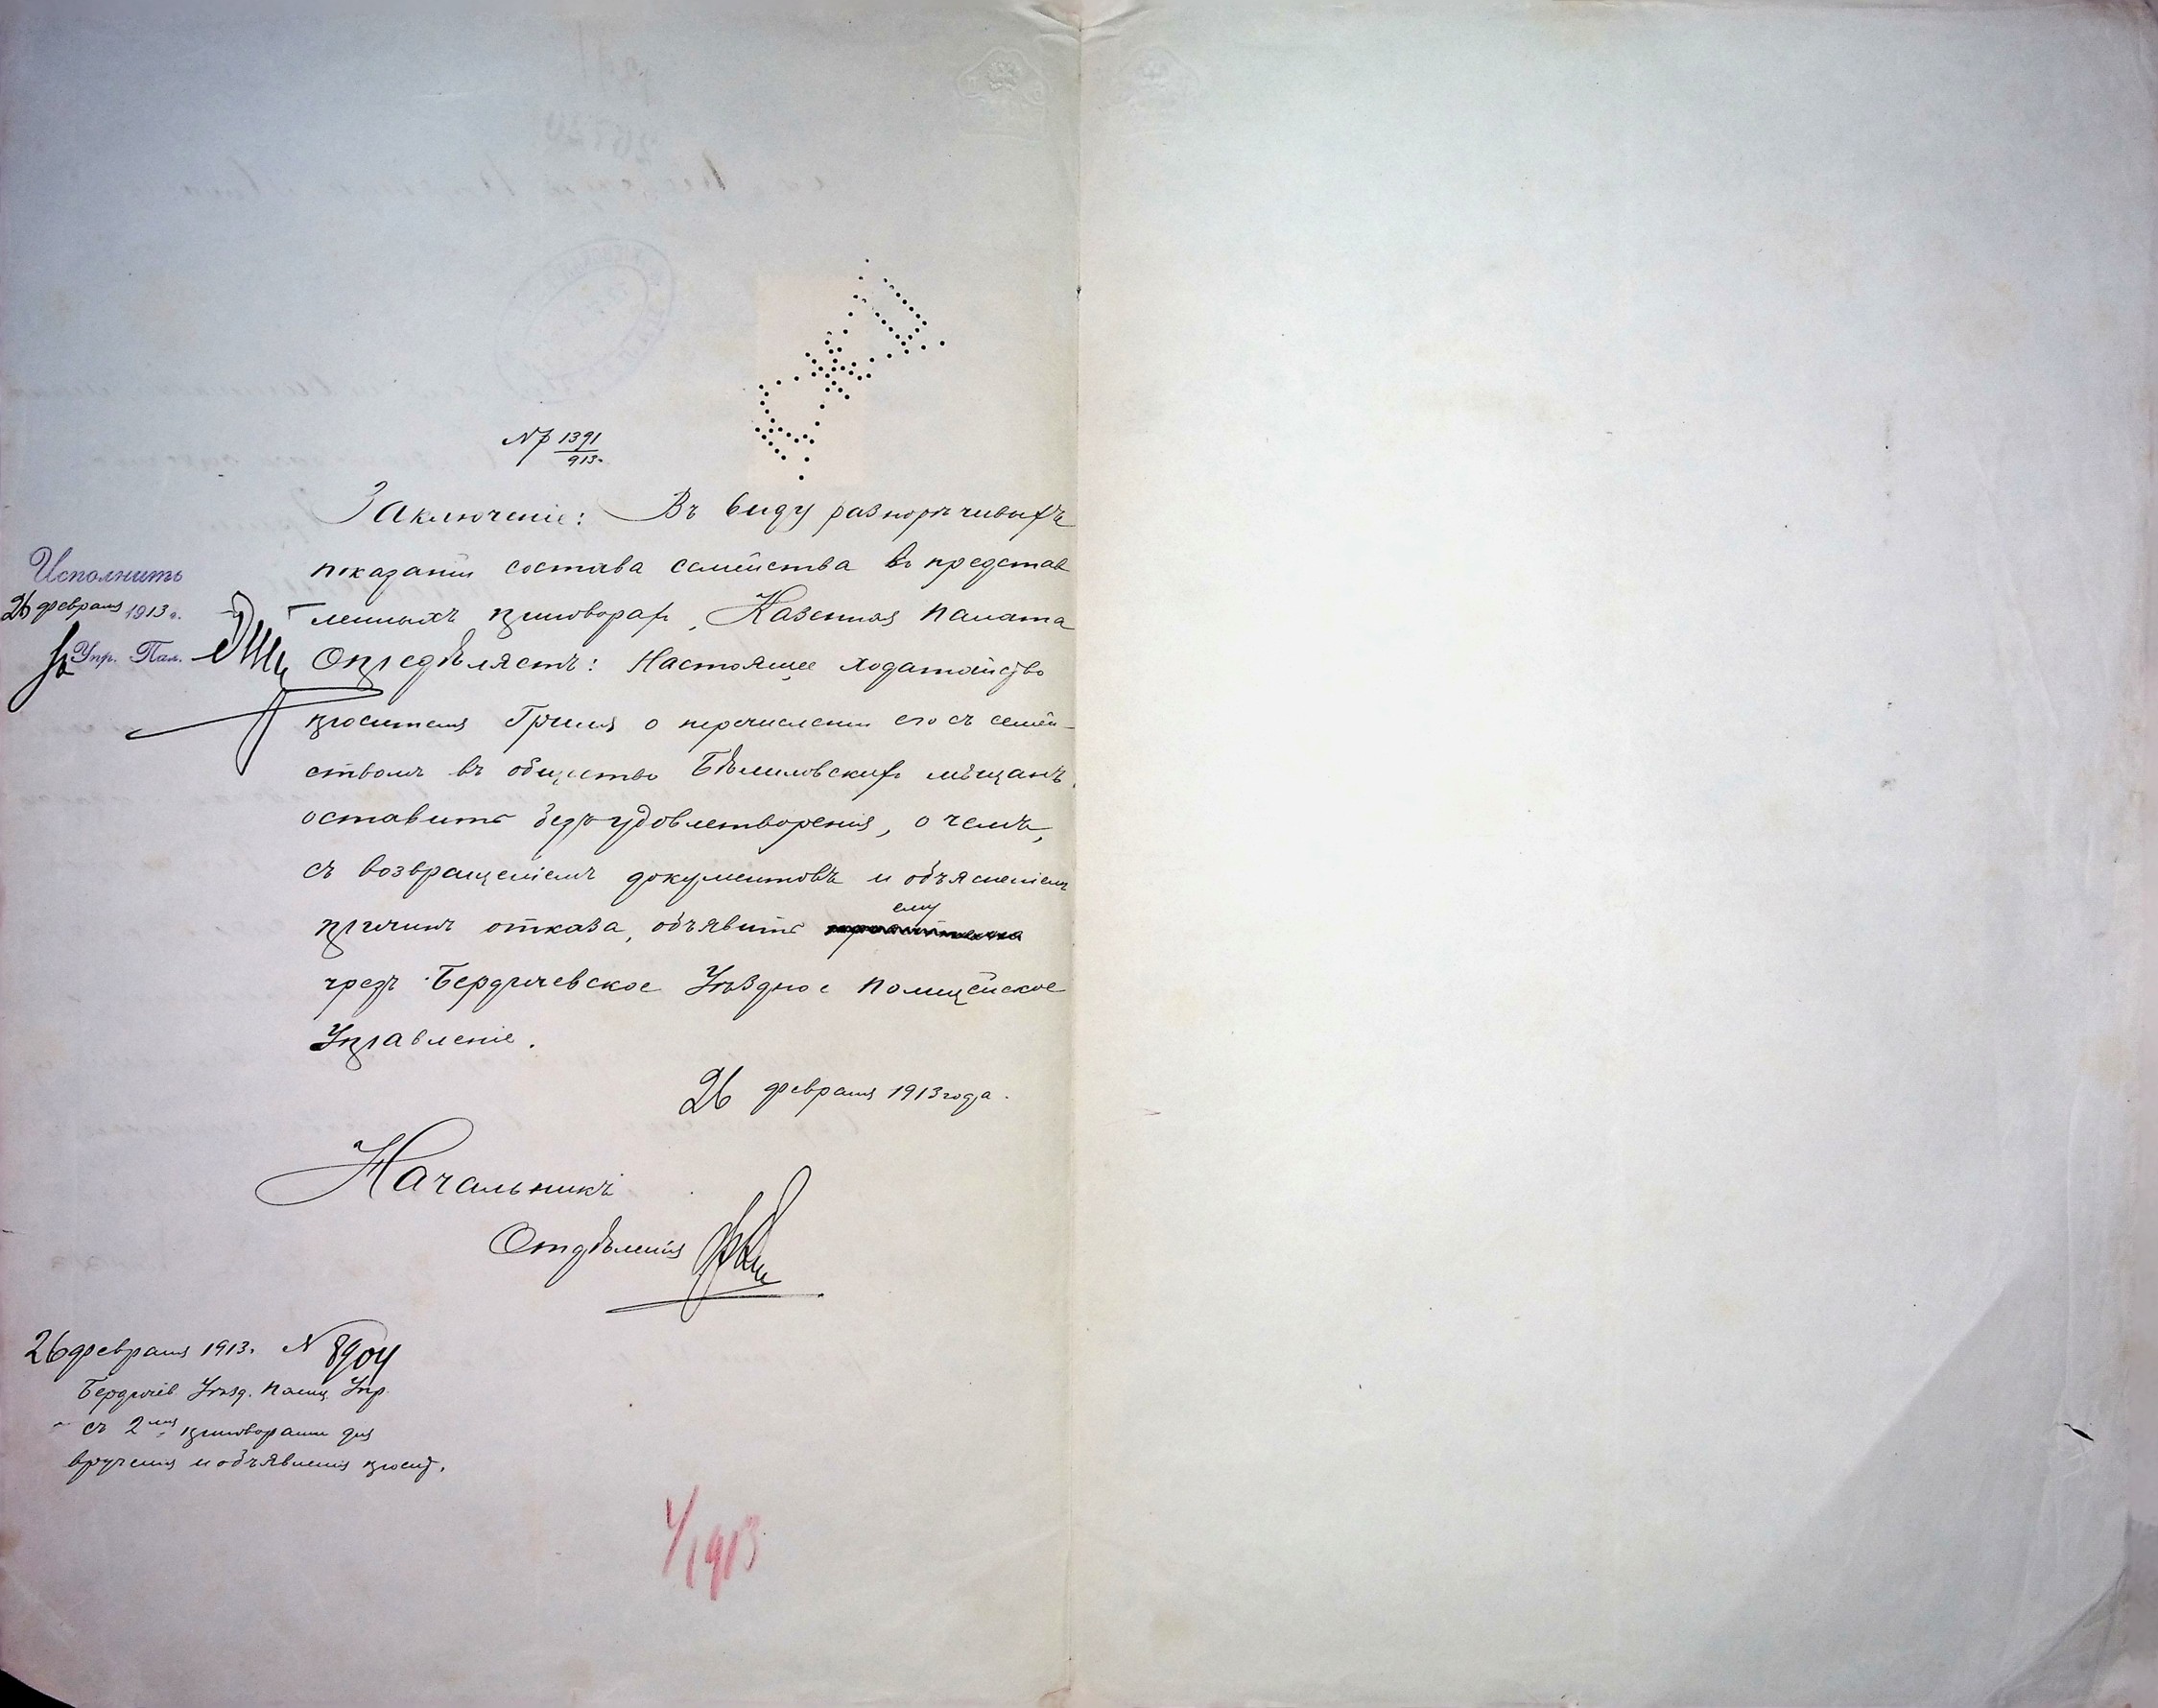 № 1391/913.
Заключеніе: Въ виду разнорѣчивыхъ
показаній состава семейства въ представ
ленныхъ приговорахъ, Казенная Палата
Опредѣляетъ: Настоящее ходатайство
просителя Гриля о перечисленіи его съ семей-
ствомъ въ общество Бѣлиловскихъ мѣщанъ,
оставить безъ удовлетворенія, о чемъ,
съ возвращеніемъ документовъ и объясненіемъ
ему
причинъ отказа, объявить
чрезъ Бердичевское Уѣздное Полицейское
Управленіе.
26 февраля 1913 года.
Начальникъ
Отдѣленія
Исполнить
26 февраля 1913 г.
Упр. Пал.
26 февраля 1913 г. № 8904
Бердичев. Уѣзд. Полиц. Упр.
съ 2мя приговорами для
врученія и объявленія просит.
1/1913